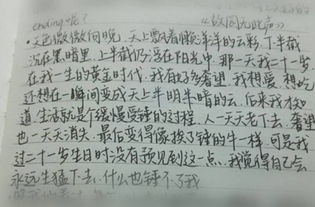 ending呢?
《致同此声》
·天色微微向晚,天上飘着懒洋洋的云彩,下半截
沉在黑暗里,上半截仍浮在阳光中,那一天我二十一岁
在我一生的黄金时代,我有好多奢望,我想爱,想吃
还想在一瞬间变成天上半明半暗的云,后来我才知
道,生活就是个缓慢受锤的过程,人一天天老下去,奢望
也一天天消失,最后变得像挨了锤的牛一样,可是我
过二十一岁生日时,没有预见到这一点,我觉得自己会
永远生猛下去,什么也锤不了我